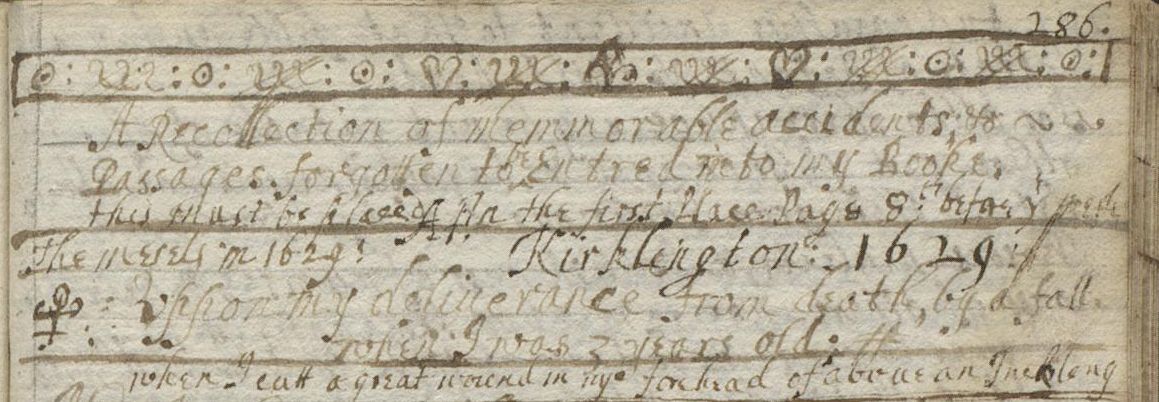 286.
A Recollection of memmorable accidents, &
Passages. forgotten to be Entred into my Booke.
this must be placed in the first Place Page 8th before
the mesels in 1629: Kirklington: 1629:
Uppon my deliuerance from death, by a fall.
when I was 3 years old.
when I cutt a great wound in my forehead of aboue an Inch long